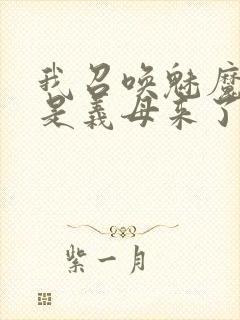 我召唤魅魔
是义母来了
紫一月